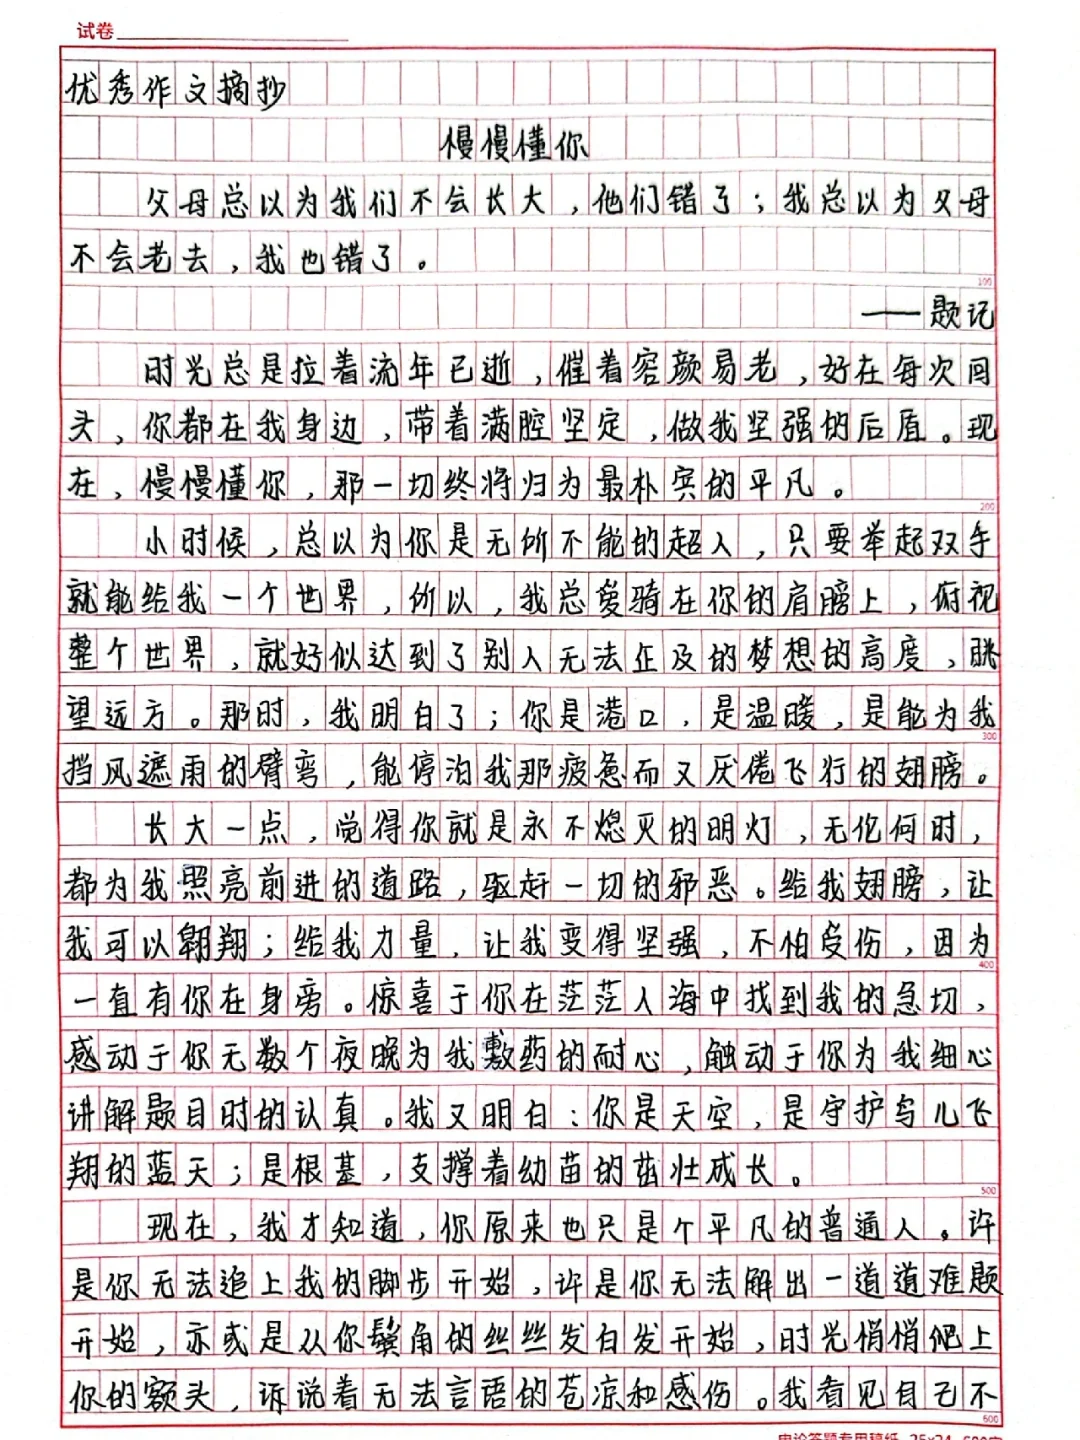 试卷
优秀作文摘抄
慢慢懂你
父母总以为我们不会长大，他们错了；我总以为父母
不会老去，我也错了。
100
——题记
时光总是拉着流年已逝，催着容颜易老，好在每次回
头，你都在我身边，带着满腔坚定，做我坚强的后盾。现
在，慢慢懂你，那一切终将归为最朴实的平凡。
200
小时候，总以为你是无所不能的超人，只要举起双手
就能给我一个世界，所以，我总爱骑在你的肩膀上，俯视
整个世界，就好似达到了别人无法企及的梦想的高度，眺
望远方。那时，我明白了；你是港口，是温暖，是能为我
300
挡风遮雨的臂弯，能停泊我那疲惫而又厌倦飞行的翅膀。
长大一点，觉得你就是永不熄灭的明灯，无伦何时，
都为我照亮前进的道路，驱赶一切的邪恶。给我翅膀，让
我可以翱翔；给我力量，让我变得坚强，不怕受伤，因为
400
一直有你在身旁。惊喜于你在茫茫人海中找到我的急切，
感动于你无数个夜晚为我敷药的耐心，触动于你为我细心
讲解题目时的认真。我又明白：你是天空，是守护鸟儿飞
翔的蓝天；是根基，支撑着幼苗的茁壮成长。
500
现在，我才知道，你原来也只是个平凡的普通人。许
是你无法追上我的脚步开始，许是你无法解出一道道难题
开始，亦或是从你鬓角的丝丝发白发开始，时光悄悄爬上
你的额头，诉说着无法言语的苍凉和感伤。我看见自己不
600
申论答题专用稿纸 25×24=600字